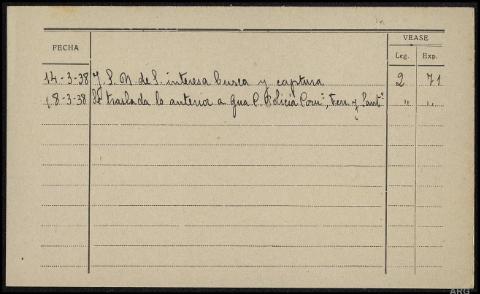 FECHA VEASE
Leg. Exp.
14-3-38 J. S. N. de S. interesa busca y captura 2 71
18-3-38 Se traslada lo anterior a Gua C. Policia Coruª, Ferr. y Santº " "
ARG